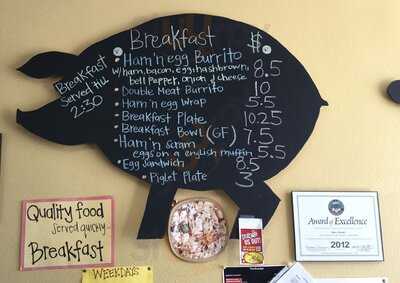 Breakfast $
Breakfast
Served till
2:30
Ham'n egg Burrito 8.5
w/ham, bacon, egg, hashbrown,
bell Pepper, onion & cheese
Double Meat Burrito 10
Ham'n egg Wrap 5.5
Breakfast Plate 10.25
Breakfast Bowl (GF) 7.5
Ham'n Scram
eggs on a english muffin 5.5
Egg Sandwich 8.5
Piglet Plate 3
Quality food
served quickly...
Breakfast
WEEKDAYS
Award of Excellence
2012